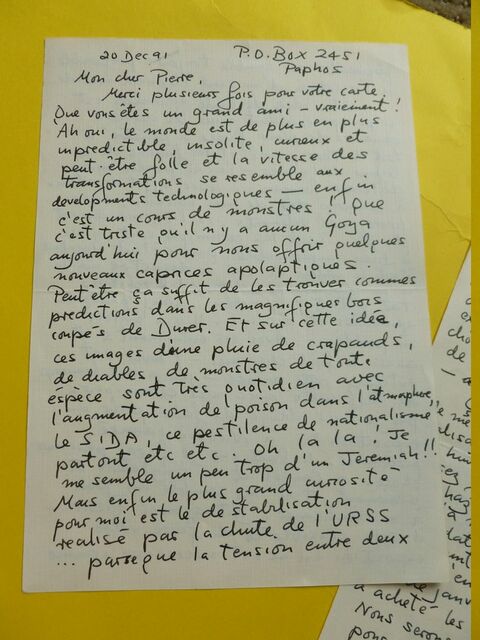 20 Dec 91 P.O. Box 2451
Paphos
Mon cher Pierre,
Merci plusieurs fois pour votre carte.
Que vous êtes un grand ami – vraiement!
Ah oui, le monde est de plus en plus
impredictible, insolite, cureux et
peut-être folle et la vitesse des
transformations se resemble aux
developments technologiques — enfin
c'est un cours de monstres! que
c'est triste qu'il n'y a aucun Goya
aujourd'hui pour nous offrir quelques
nouveaux caprices apolaptiques.
Peut'être ça suffit de les trouver commes
predictions dans les magnifiques bois
coupés de Durer. Et sur cette idée,
ces images d'une pluie de crapauds,
de diables, de monstres de toute
espèce sont très quotidien avec
l'augmentation de poison dans l'atmaphere,
le SIDA, ce pestilence de nationalisme
partout etc etc. Oh la la! Je
me semble un peu trop d'un Jeremiah!!
Mais enfin le plus grand curiosité
pour moi est le de stabilisation
realisé par la chute de l'URSS
... parseque la tension entre deux
de
a acheté les
Nous seron
pour